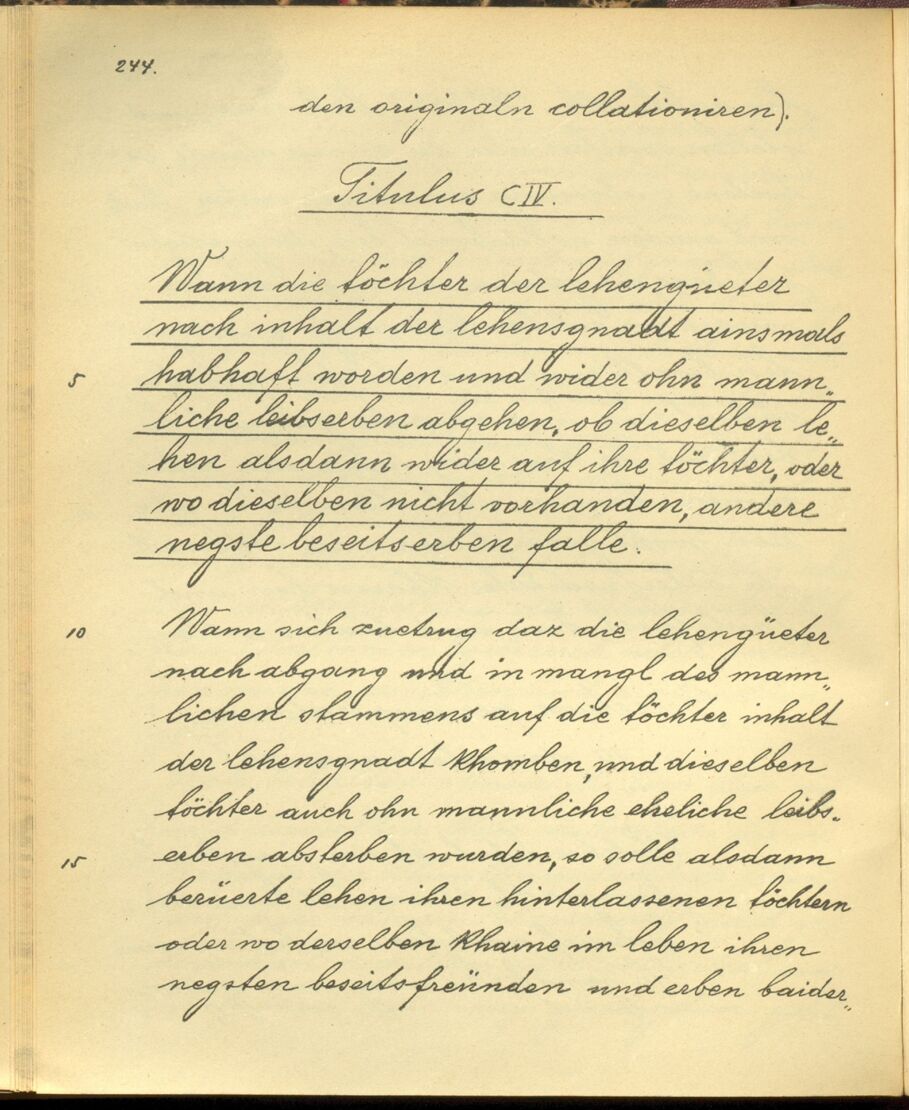 244.
den originaln collationiren).
Titulus CIV.
Wann die töchter der lehengüeter
nach inhalt der lehensgnadt ainsmals
5 habhaft worden und wider ohn mann„
liche leibserben abgehen, ob dieselben le„
hen alsdann wider auf ihre töchter, oder
wo dieselben nicht vorhanden, andere
negste beseitserben falle.
10 Wann sich zuetrug daz die lehengüeter
nach abgang und in mangl des mann„
lichen stammens auf die töchter inhalt
der lehensgnadt khomben, und dieselben
töchter auch ohn mannliche eheliche leibs„
15 erben absterben wurden, so solle alsdann
berüerte lehen ihren hinterlassenen töchtern
oder wo derselben khaine im leben ihren
negsten beseitsfreünden und erben baider„